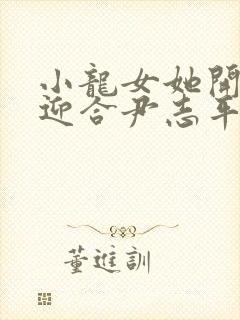 小龍女她開
迎合尹志平
董進訓